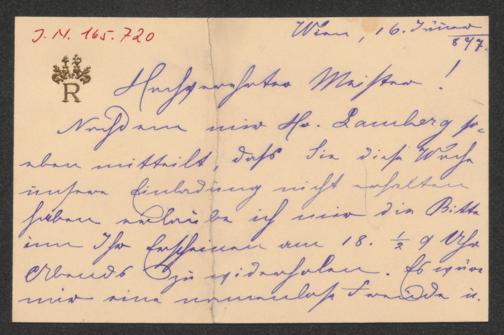 J.N. 165.720
Wien, 16. Jänner
897.
R
Hochverehrter Meister!
Nachdem mir Hr. Lamberg so-
eben mitteilt, daß Sie diese Woche
unsere Einladung nicht erhalten
haben erlaube ich mir die Bitte
um Ihr Erscheinen am 18. ½ 9 Uhr
Abends zu wiederholen. Es wäre
mir eine namenlose Freude u.